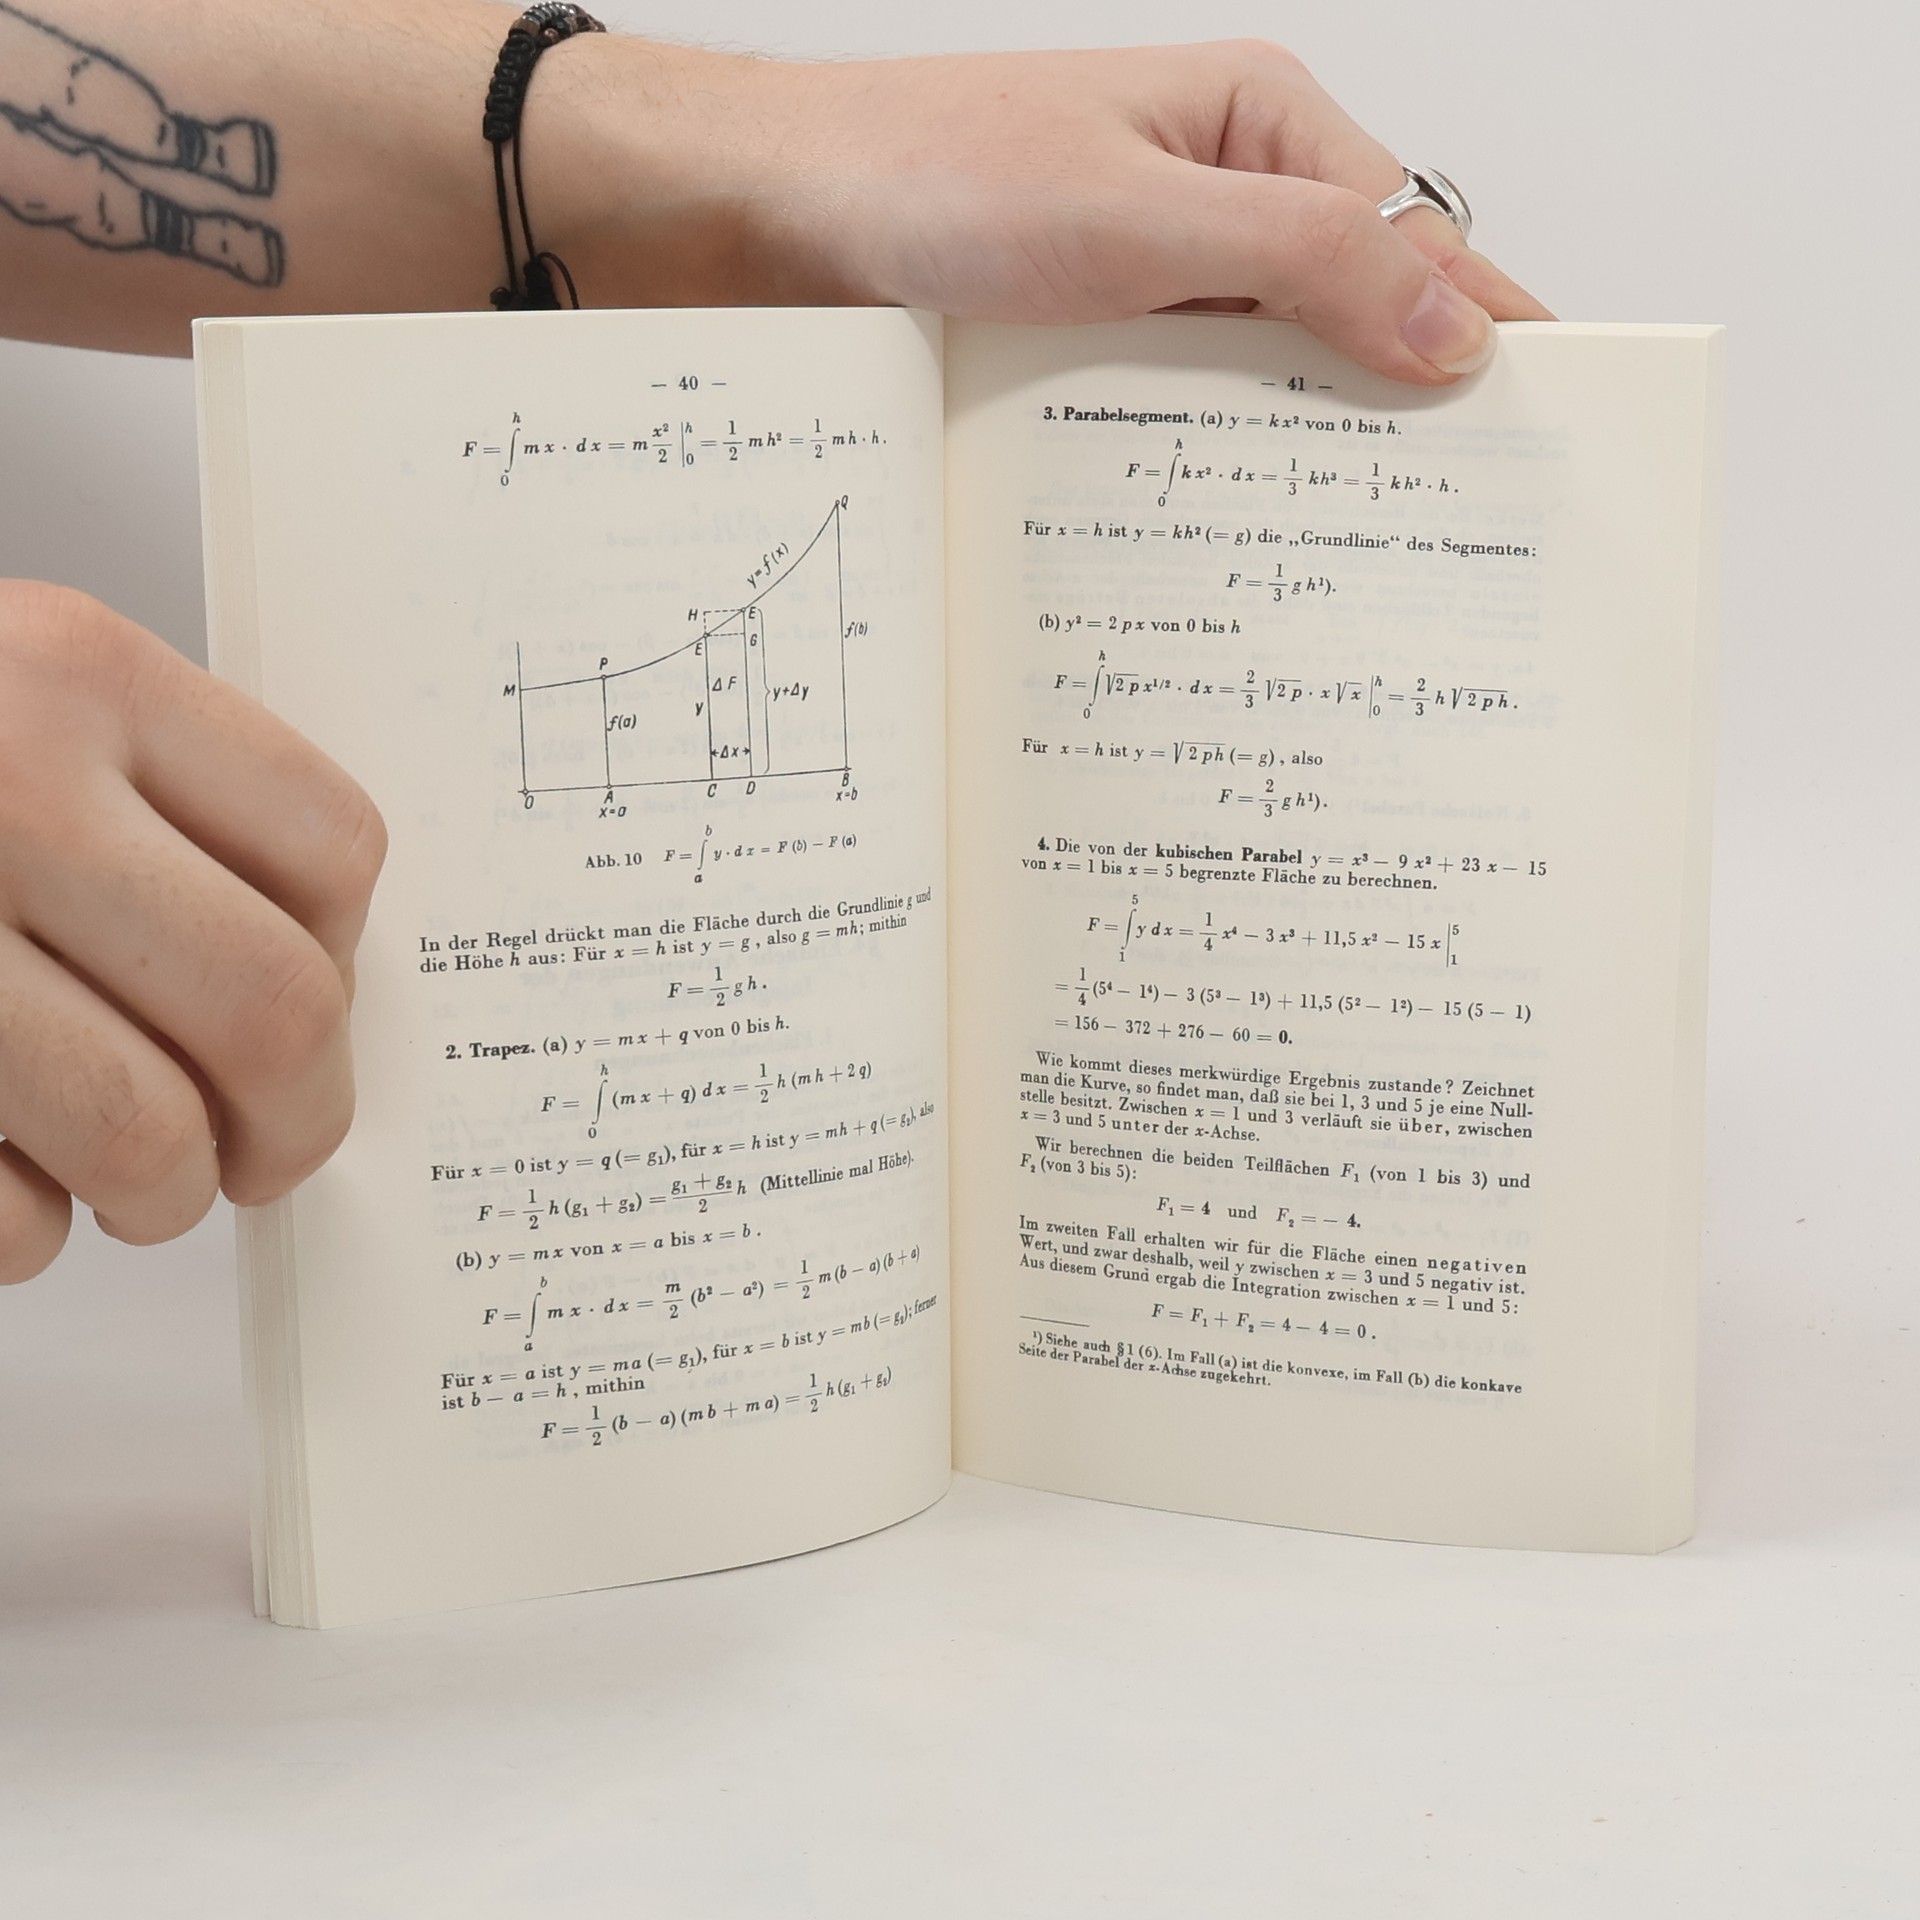 — 40 —
F = ∫₀ʰ m x · d x = m x²/2 |₀ʰ = 1/2 m h² = 1/2 m h · h.
Q
y=f(x)
H E
E G
f(b)
P
M
ΔF
y+Δy
f(a)
y
Δx
O A C D B
x=a x=b
Abb. 10 F = ∫ₐᵇ y · d x = F (b) — F (a)
In der Regel drückt man die Fläche durch die Grundlinie g und
die Höhe h aus: Für x = h ist y = g, also g = mh; mithin
F = 1/2 g h.
2. Trapez. (a) y = m x + q von 0 bis h.
F = ∫₀ʰ (m x + q) d x = 1/2 h (m h + 2 q)
Für x = 0 ist y = q (= g₁), für x = h ist y = mh + q (= g₂), also
F = 1/2 h (g₁ + g₂) = (g₁ + g₂)/2 h (Mittellinie mal Höhe).
(b) y = m x von x = a bis x = b.
F = ∫ₐᵇ m x · d x = m/2 (b² — a²) = 1/2 m (b — a) (b + a)
Für x = a ist y = ma (= g₁), für x = b ist y = mb (= g₂); ferner
ist b — a = h, mithin
F = 1/2 (b — a) (m b + m a) = 1/2 h (g₁ + g₂)
— 41 —
3. Parabelsegment. (a) y = k x² von 0 bis h.
F = ∫₀ʰ k x² · d x = 1/3 kh³ = 1/3 k h² · h.
Für x = h ist y = kh² (= g) die „Grundlinie“ des Segmentes:
F = 1/3 g h¹).
(b) y² = 2 p x von 0 bis h
F = ∫₀ʰ √2 p x^1/2 · d x = 2/3 √2 p · x √x |₀ʰ = 2/3 h √2 p h.
Für x = h ist y = √2 ph (= g), also
F = 2/3 g h¹).
4. Die von der kubischen Parabel y = x³ — 9 x² + 23 x — 15
von x = 1 bis x = 5 begrenzte Fläche zu berechnen.
F = ∫₁⁵ y d x = 1/4 x⁴ — 3 x³ + 11,5 x² — 15 x |₁⁵
= 1/4 (5⁴ — 1⁴) — 3 (5³ — 1³) + 11,5 (5² — 1²) — 15 (5 — 1)
= 156 — 372 + 276 — 60 = 0.
Wie kommt dieses merkwürdige Ergebnis zustande? Zeichnet
man die Kurve, so findet man, daß sie bei 1, 3 und 5 je eine Null-
stelle besitzt. Zwischen x = 1 und 3 verläuft sie über, zwischen
x = 3 und 5 unter der x-Achse.
Wir berechnen die beiden Teilflächen F₁ (von 1 bis 3) und
F₂ (von 3 bis 5):
F₁ = 4 und F₂ = — 4.
Im zweiten Fall erhalten wir für die Fläche einen negativen
Wert, und zwar deshalb, weil y zwischen x = 3 und 5 negativ ist.
Aus diesem Grund ergab die Integration zwischen x = 1 und 5:
F = F₁ + F₂ = 4 — 4 = 0.
¹) Siehe auch § 1 (6). Im Fall (a) ist die konvexe, im Fall (b) die konkave
Seite der Parabel der x-Achse zugekehrt.